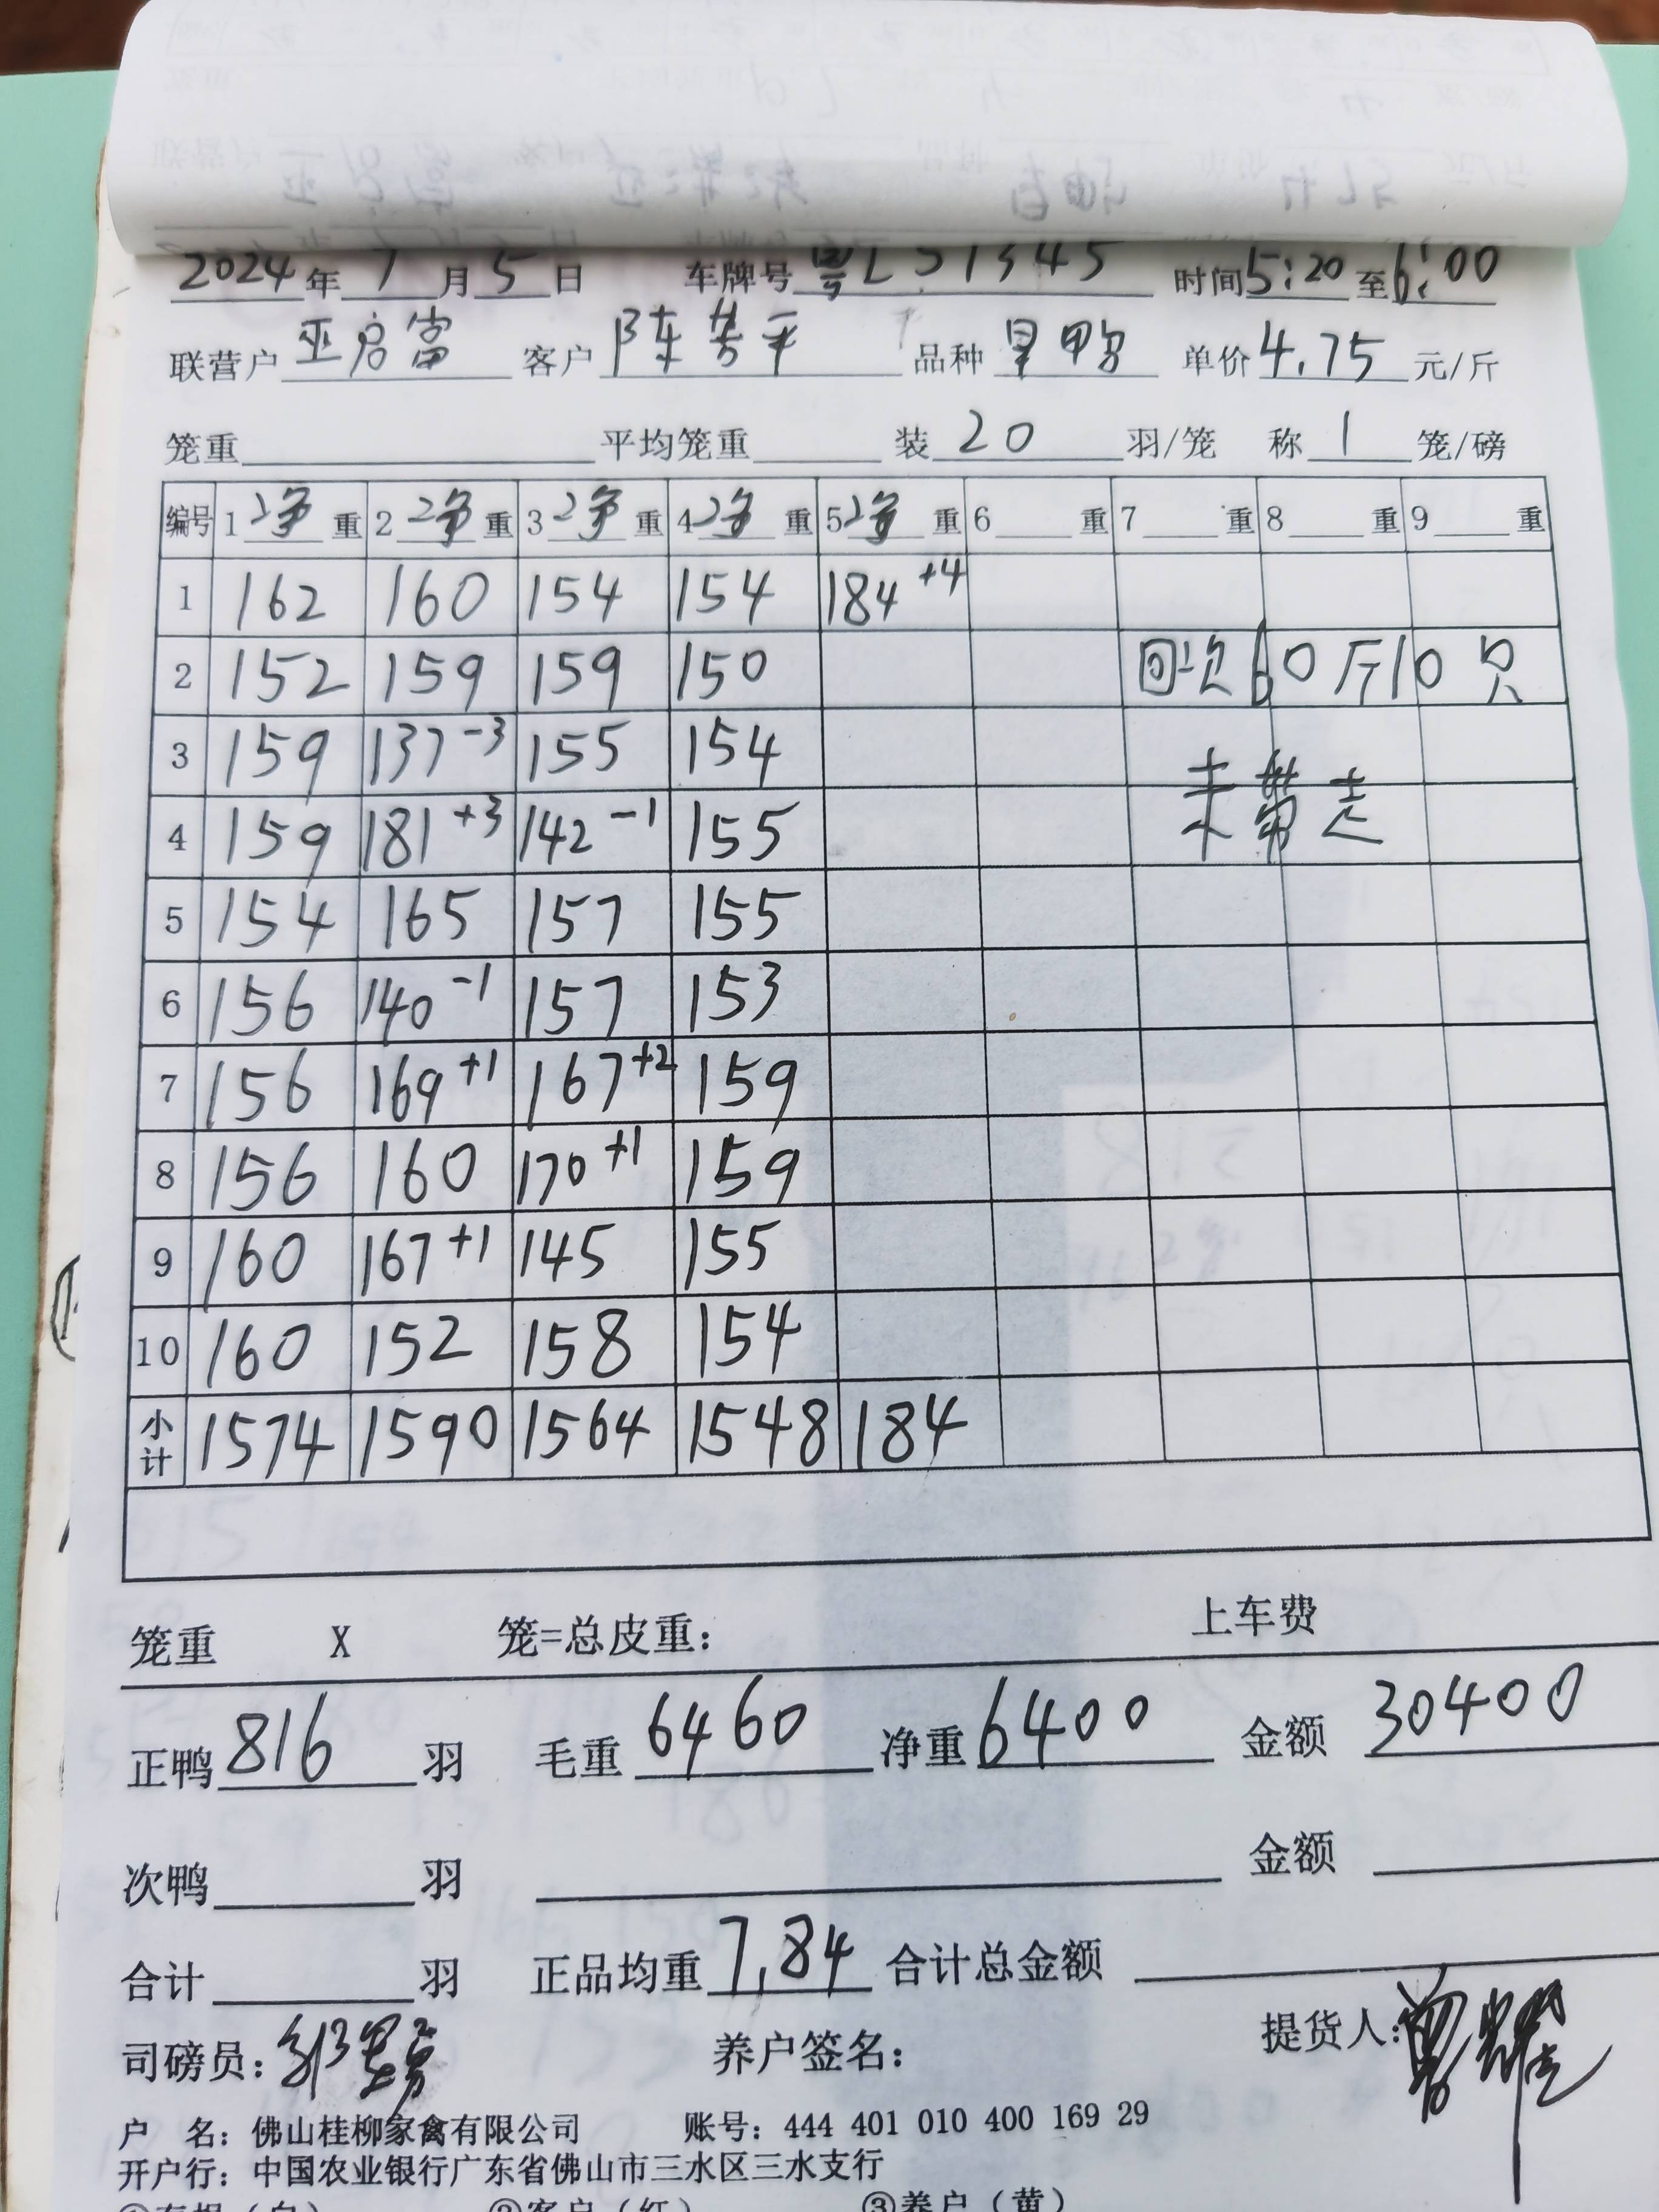 2024年7月5日 车牌号 粤L51345 时间5:20至6:00
联营户 巫启富 客户 陈芳平 品种 呈鸭 单价4.75元/斤
笼重 平均笼重 装20羽/笼 称1笼/磅
编号 1净重 2净重 3净重 4净重 5净重 6 重 7 重 8 重 9 重
1 162 160 154 154 184+4
2 152 159 159 150 回次60斤10只
3 159 137-3 155 154
未带走
4 159 181+3 142-1 155
5 154 165 157 155
6 156 140-1 157 153
7 156 169+1 167+2 159
8 156 160 170+1 159
9 160 167+1 145 155
10 160 152 158 154
小计 1574 1590 1564 1548 184
笼重 X 笼=总皮重: 上车费
正鸭816羽 毛重6460 净重6400 金额30400
次鸭 羽 金额
合计 羽 正品均重7.84 合计总金额
司磅员: 养户签名: 提货人:
户 名: 佛山桂柳家禽有限公司 账号: 444 401 010 400 169 29
开户行: 中国农业银行广东省佛山市三水区三水支行
②客户(红) ③养户(黄)